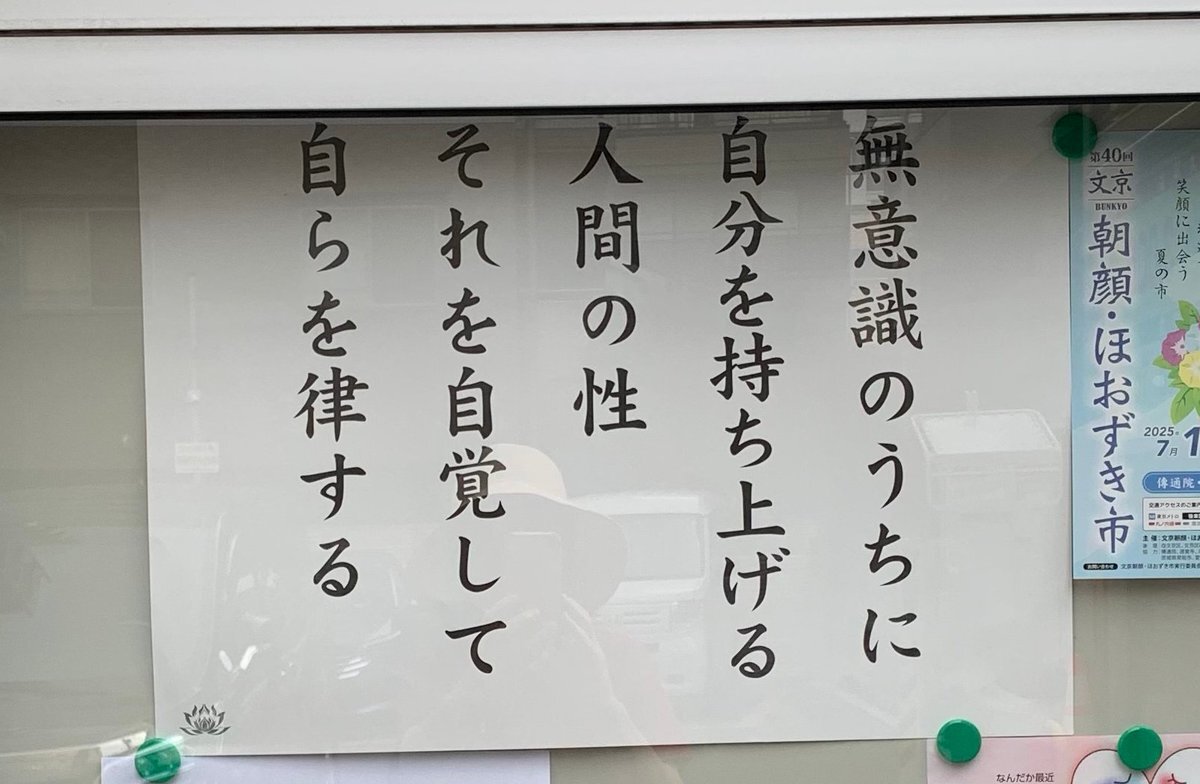 無意識のうちに
自分を持ち上げる
人間の性
それを自覚して
自らを律する
第40回
文京
BUNKYO
朝顔・ほおずき市
笑顔に出会う
夏の市
2025年
7月1
傳通院・
交通アクセスのご案内
お問い合わせ
なんだか最近